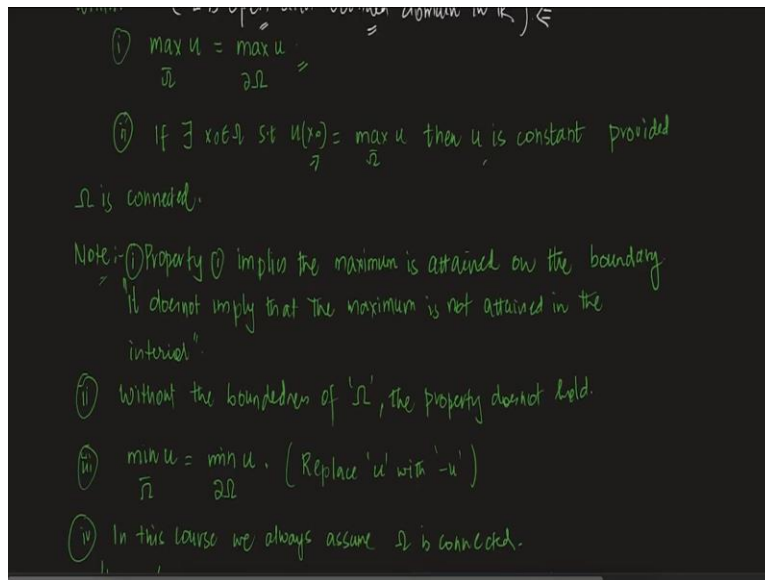 (Ω is open and bounded domain in ℝ) ⇐
(i) max u = max u.
Ω̄ ∂Ω
(ii) If ∃ x₀∈Ω s.t u(x₀) = max u then u is constant provided
Ω̄
Ω is connected.
Note:- (i) Property (i) implies the maximum is attained on the boundary
"it doesnot imply that the maximum is not attained in the
interior".
(ii) Without the boundedness of 'Ω', the property doesnot hold.
(iii) min u = min u. (Replace 'u' with '-u')
Ω̄ ∂Ω
(iv) In this course we always assume Ω is connected.